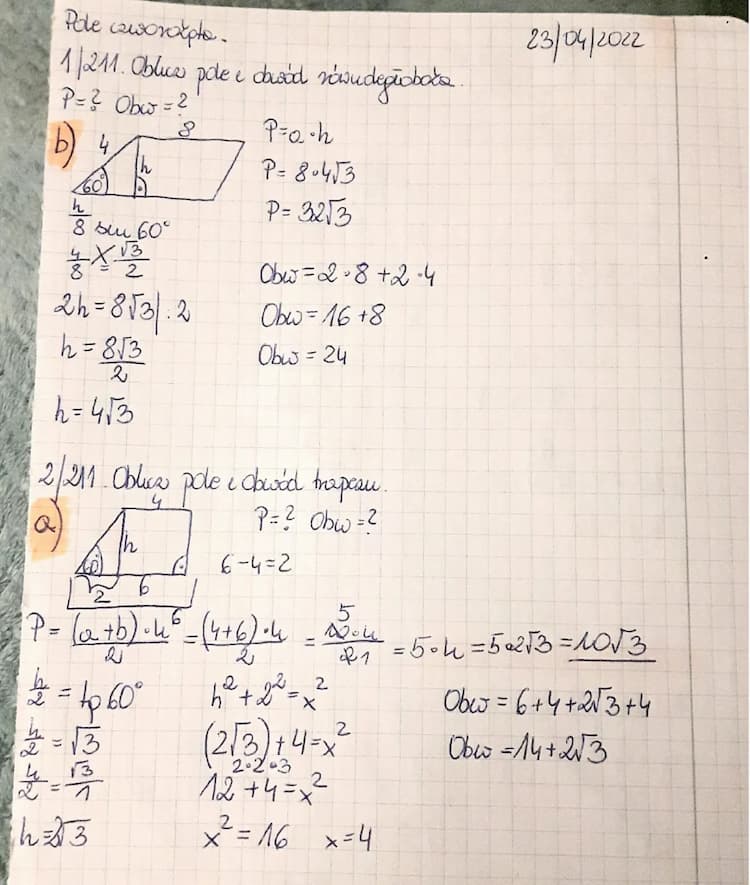 Pole czworokąta.
23/04/2022
1/211. Oblicz pole i obwód równoległoboku.
P=? Obw=?
b)
4
8
h
60°
P=a·h
P=8·4√3
P=32√3
h/8 sin 60°
4/8 = √3/2
2h=8√3|·2
h=8√3/2
h=4√3
Obw=2·8+2·4
Obw=16+8
Obw=24
2/211. Oblicz pole i obwód trapezu.
a)
4
h
60°
2
6
P=? Obw=?
6-4=2
6
P=(a+b)·h/2=(4+6)·h/2=10·h/2 5 1=5·h=5·2√3=10√3
h/2=tg60°
h/2=√3
h/2=√3/1
h=2√3
h²+2²=x²
(2√3)+4=x²
2·2·3
12+4=x²
x²=16 x=4
Obw=6+4+2√3+4
Obw=14+2√3